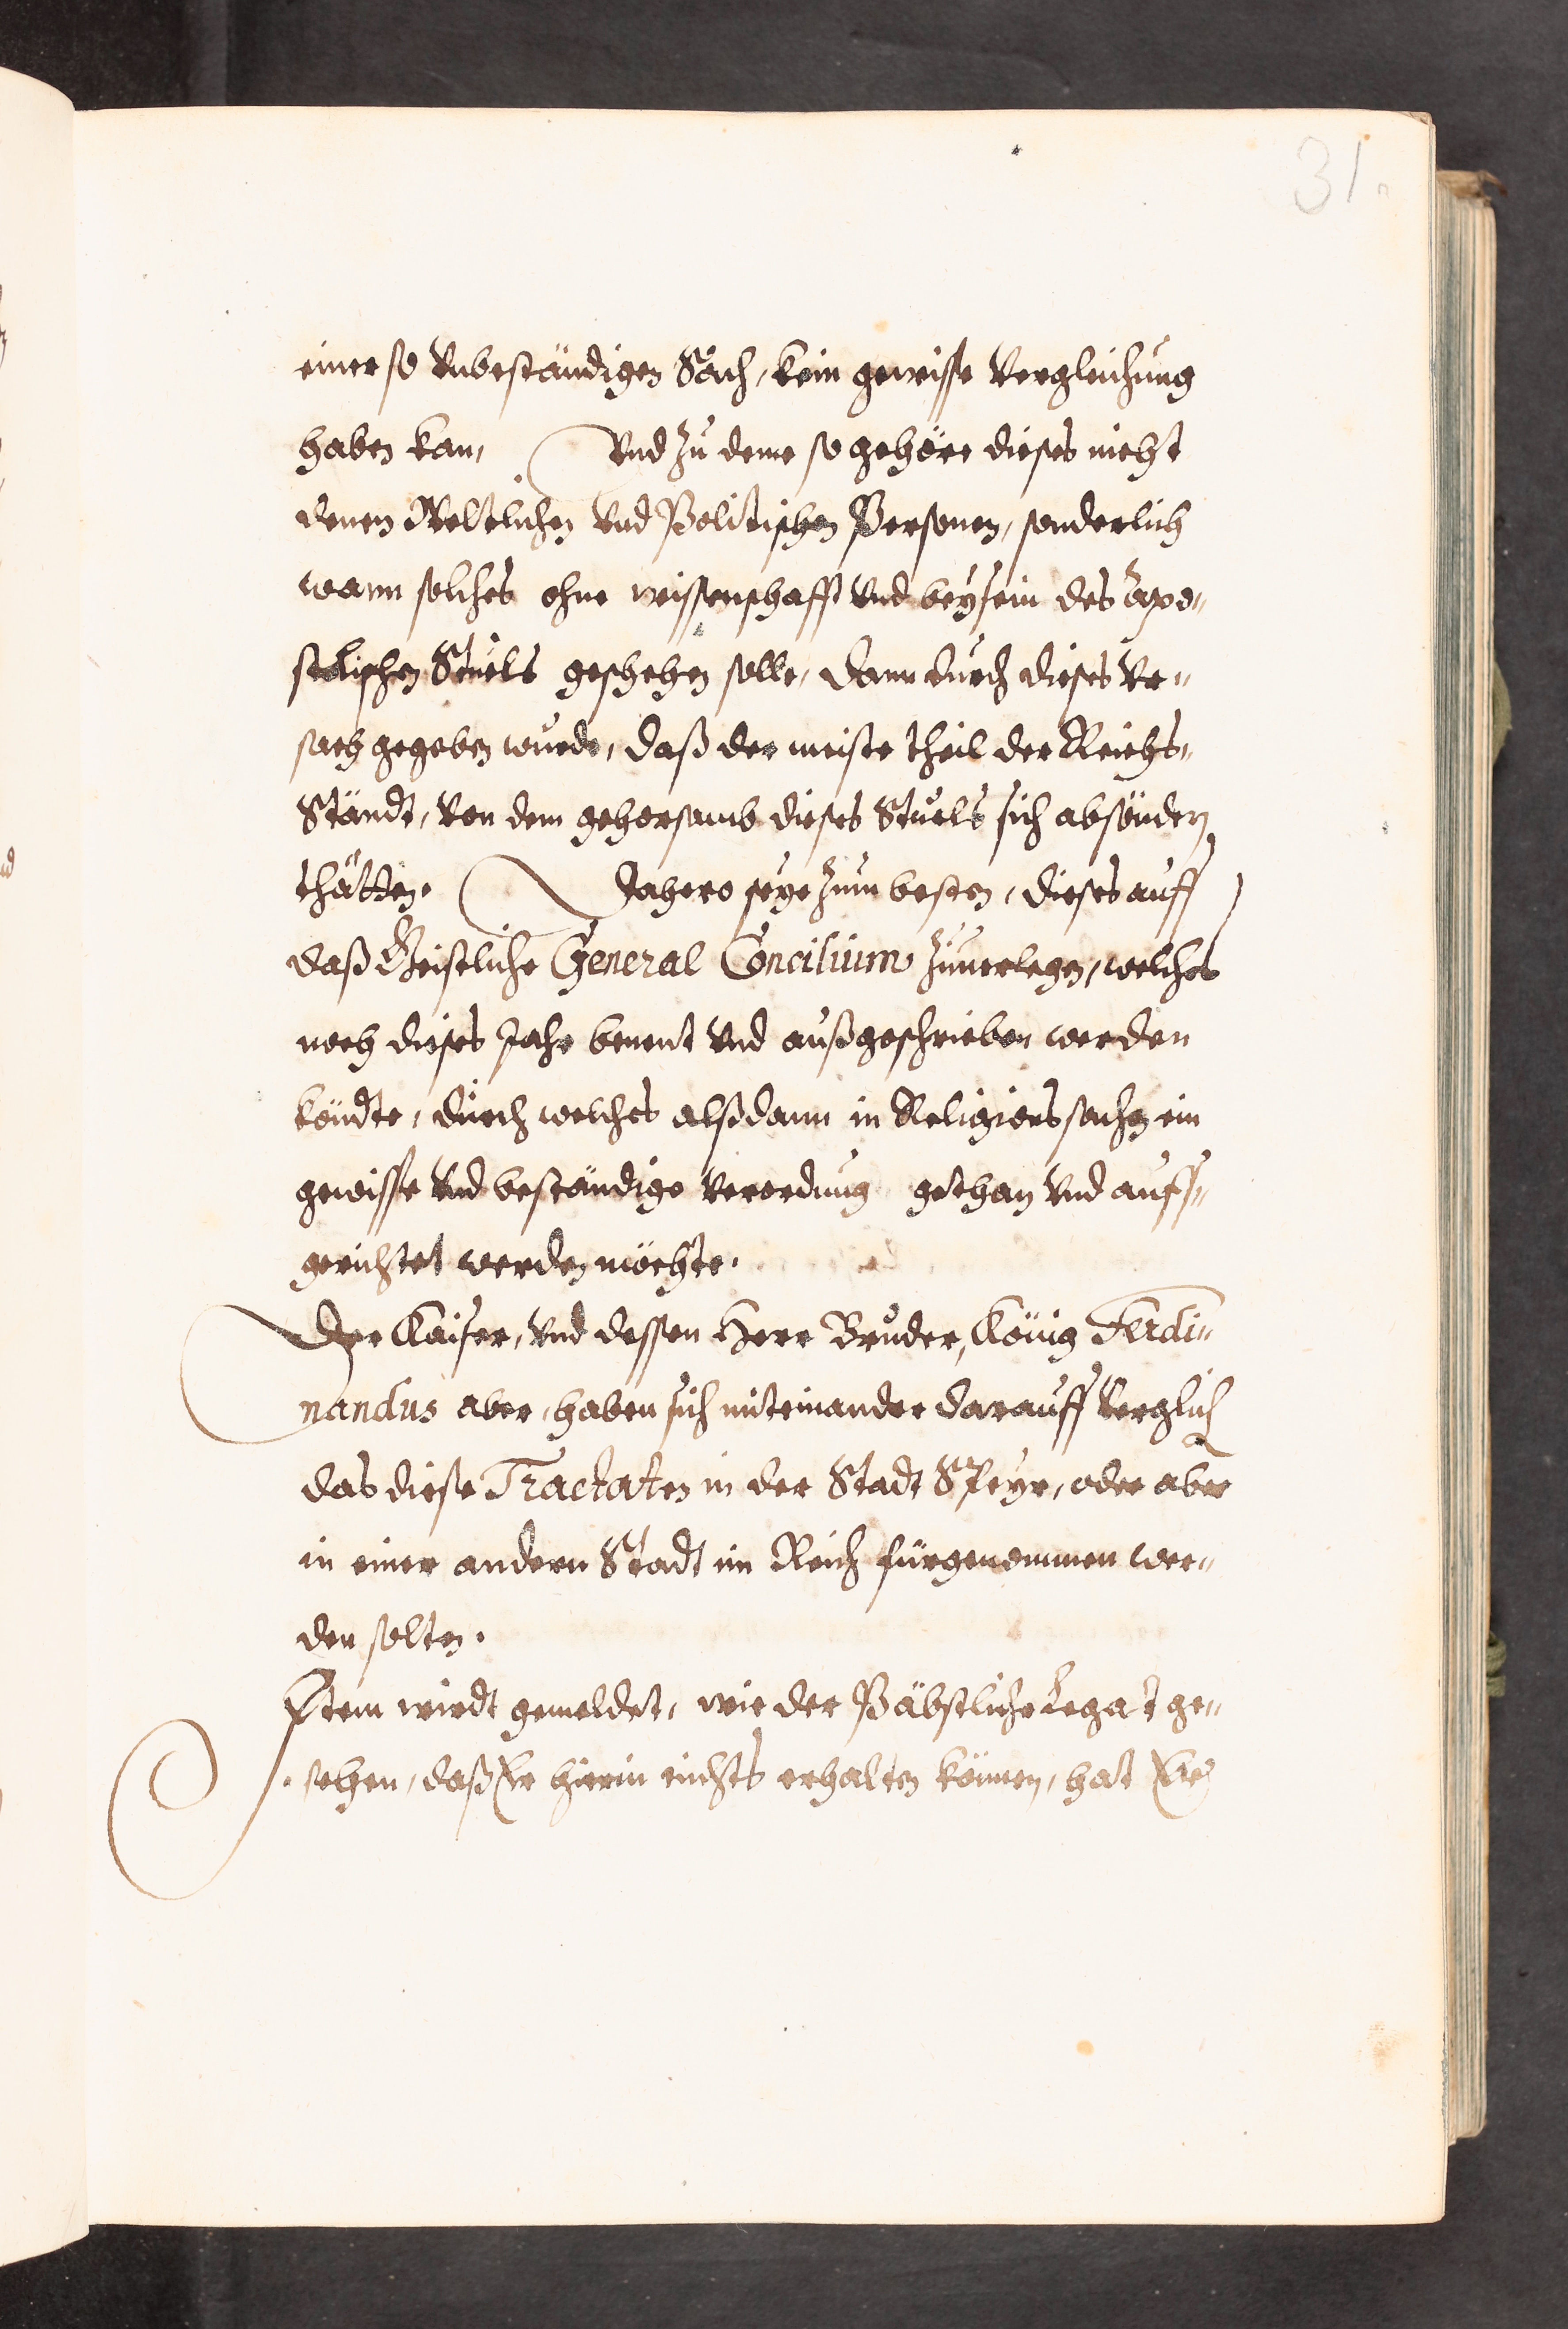 31.
einer so Vnbeständigen Sach, kein gewisse Vergleichung
haben kan, Vnd zu deme so gehöre dieses nicht
denen Weltlichen Vnd Politischen Personen, sonderlich
wann solches ohne wissenschafft Vnd beysein des Apo-
stolischen Stuels geschehen solle, dann durch dieses Vr-
sach gegeben wurde, daß der meiste theil der Reichs-
Ständt, Von dem gehorsamb dieses Stuels sich absönden
thätten. Dahero seye zum besten, dieses auff
daß Geistliche General Concilium zuuerlegen, welches
noch dieses Jahr benent Vnd außgeschrieben werden
köndte, durch welches alßdann in Religions sachen ein
gewisse Vnd beständige Verordnung gethan Vnd auff-
gerichtet werden möchte.
Der Kaiser, Vnd dessen Herr Bruder, König Ferdi-
nandus aber, haben sich miteinander darauff Verglichen
das diese Tractaten in der Stadt Speyr, oder aber
in einer andern Stadt im Reich fürgenommen wer-
den solten.
Item wirdt gemeldet, wie der Päbstliche Legat ge-
sehen, daß Er hierin nichts erhalten können, hat Er